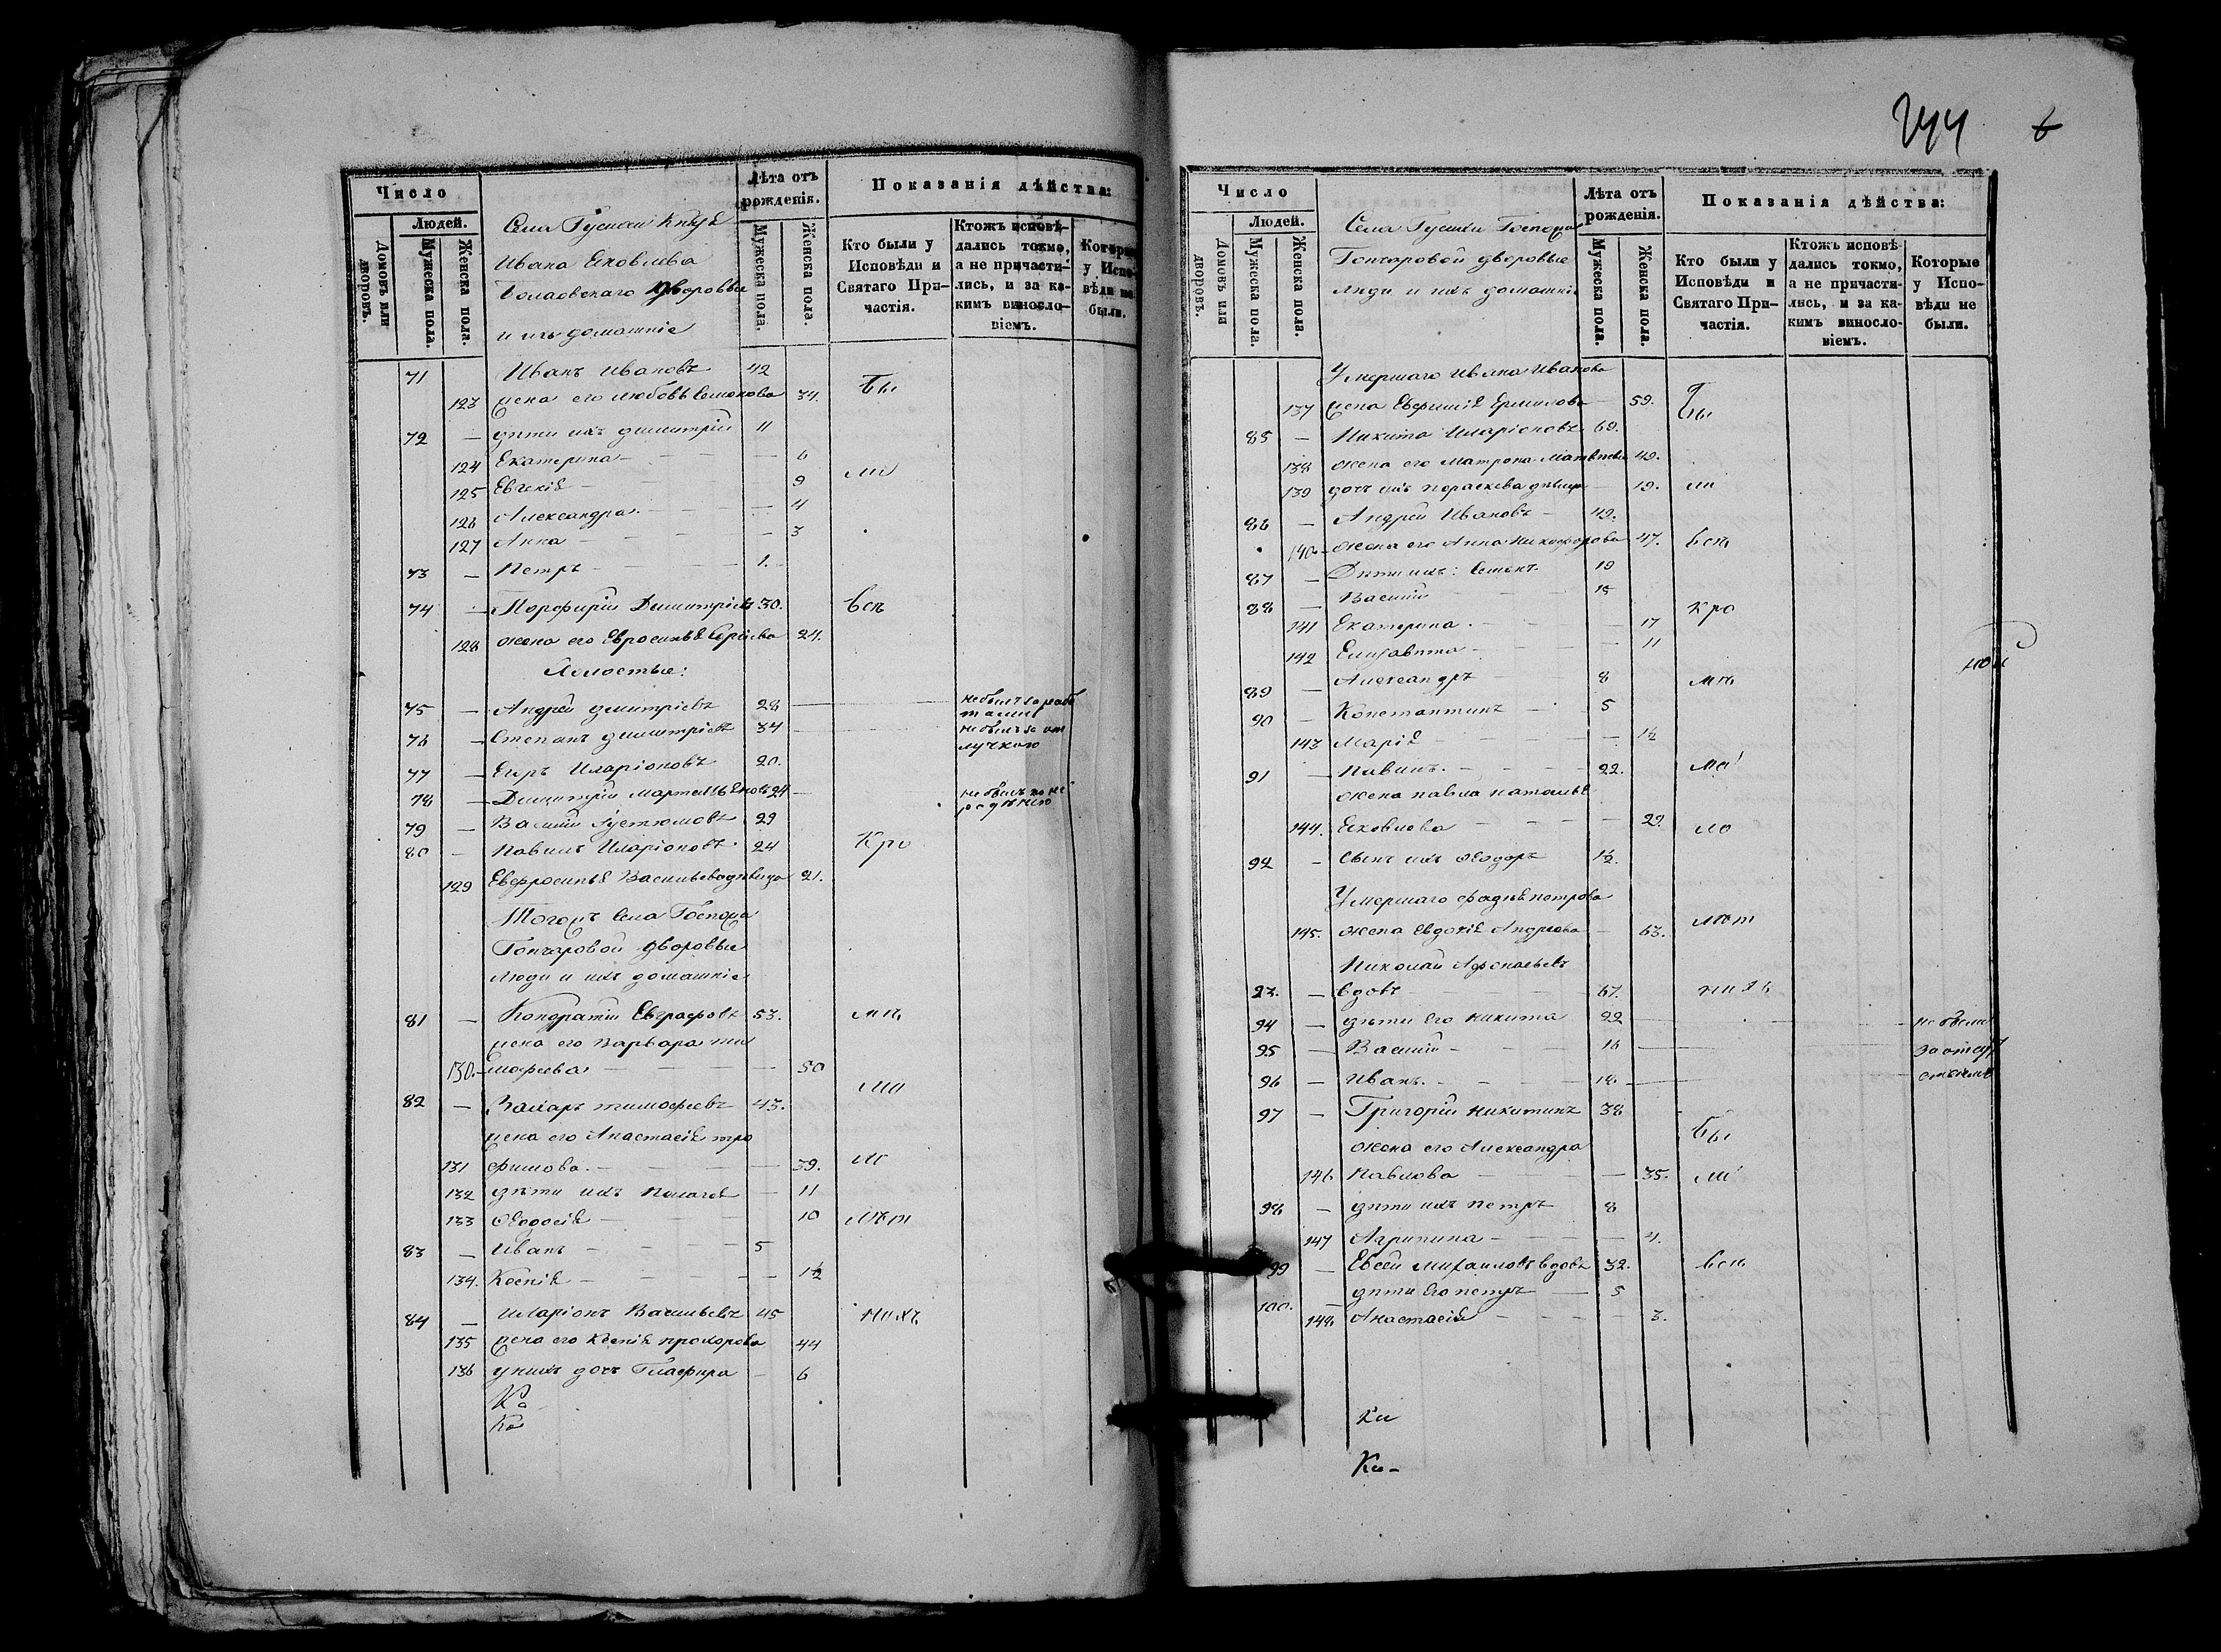 Число
Людей.
Домовъ или дворовъ.
Мужеска пола.
Женска пола.
Села Гуски Князя
Ивана Яковлева
дворовые
и ихъ домашніе
Лѣта отъ рожденія.
Мужеска пола.
Женска пола.
Показанія дѣйства:
Кто были у Исповѣди и Святаго Причастія.
Ктожъ исповѣдались токмо, а не причастились, и за какимъ винословіемъ.
Которые у Исповѣди не были.
71 Иванъ Ивановъ 42 Бы
123 жена его Любовь Семенова 34.
72 — дѣти ихъ Димитрій 11
124 Екатерина — 6
125 Евгенія — 9 ли
126 Александра — 4
127 Анна — 3
73 — Петръ — 1.
74 — Порфирій Димитріевъ 30. всѣ
128 жена его Евросинья Сергіева 24.
Холостые:
75 — Андрей Димитріевъ 28 не былъ за рабо
тами
76 — Степанъ Димитріевъ 34 не былъ за от
лучкою
77 — Егоръ Иларіоновъ 20.
78 — Димитрій 24 — не былъ по не
радѣнію
79 — Василій 29
80 — Павелъ Иларіоновъ 24 Кро
129 Евфросинья Васильева дѣвица 21.
Тогожъ Села Госпожи
Гончаровой дворовые
люди и ихъ домашніе
81 — Кондратій Евграфовъ 53. мѣ
жена его Варвара Ти
130. мофеева — 50
ма
82 — Захаръ Тимофеевъ 43.
жена его Анастасія Тро
131 фимова. — 39. ло
132 дѣти ихъ Пелагея — 11
133 Ѳеодосія — 10 лѣт
83 — Иванъ — 5
134. Ксенія — 1½
84 — Иларіонъ Васильевъ 45 нихъ
135 жена его Ксенія Прохорова 44
136 у нихъ дочь Глафира — 6
244 6
Число
Людей.
Домовъ или дворовъ.
Мужеска пола.
Женска пола.
Села Гуски Госпожи
Гончаровой дворовые
люди и ихъ домашніе
Лѣта отъ рожденія.
Мужеска пола.
Женска пола.
Показанія дѣйства:
Кто были у Исповѣди и Святаго Причастія.
Ктожъ исповѣдались токмо, а не причастились, и за какимъ винословіемъ.
Которые у Исповѣди не были.
Умершаго Ивана Иванова
137 жена Евфимія Ермилова — 59. Бы
85 — Никита Иларіоновъ 60.
138 жена его Матрона Матвѣева 49.
139 дочь ихъ Параскева дѣвица 19. ли
86 — Андрей Ивановъ — 49.
140. жена его Анна Никифорова 47. всѣ
87 — Дѣти ихъ: Семенъ 19
88 — Василій — 15 Кро
141 Екатерина — 17
142 Елизавета — 11
89 — Александръ — 8 мѣ
90 — Константинъ — 5
143 Марія — 1½
91 — Павелъ — 22. ма
жена Павла Наталья
144. Яковлева — 22. ло
92 — Сынъ ихъ Ѳеодоръ 1½.
Умершаго Фадѣя Петрова
145. жена Евдокія Андреева — 63. лѣт
Николай Афонасьевъ
93. — вдовъ — 67. нихъ
94 — дѣти его Никита 22 — не были
95 — Василій — 16 — за отлу
96 — Иванъ — 14. —
97 — Григорій Никитинъ 38 Бы
жена его Александра
146 Павлова — 35. ли
98 — дѣти ихъ Петръ 8
147 Агрипина — 4.
99 — Евсей Михайловъ вдовъ 32. всѣ
100. дѣти его Петръ — 5
148. Анастасія — 3.